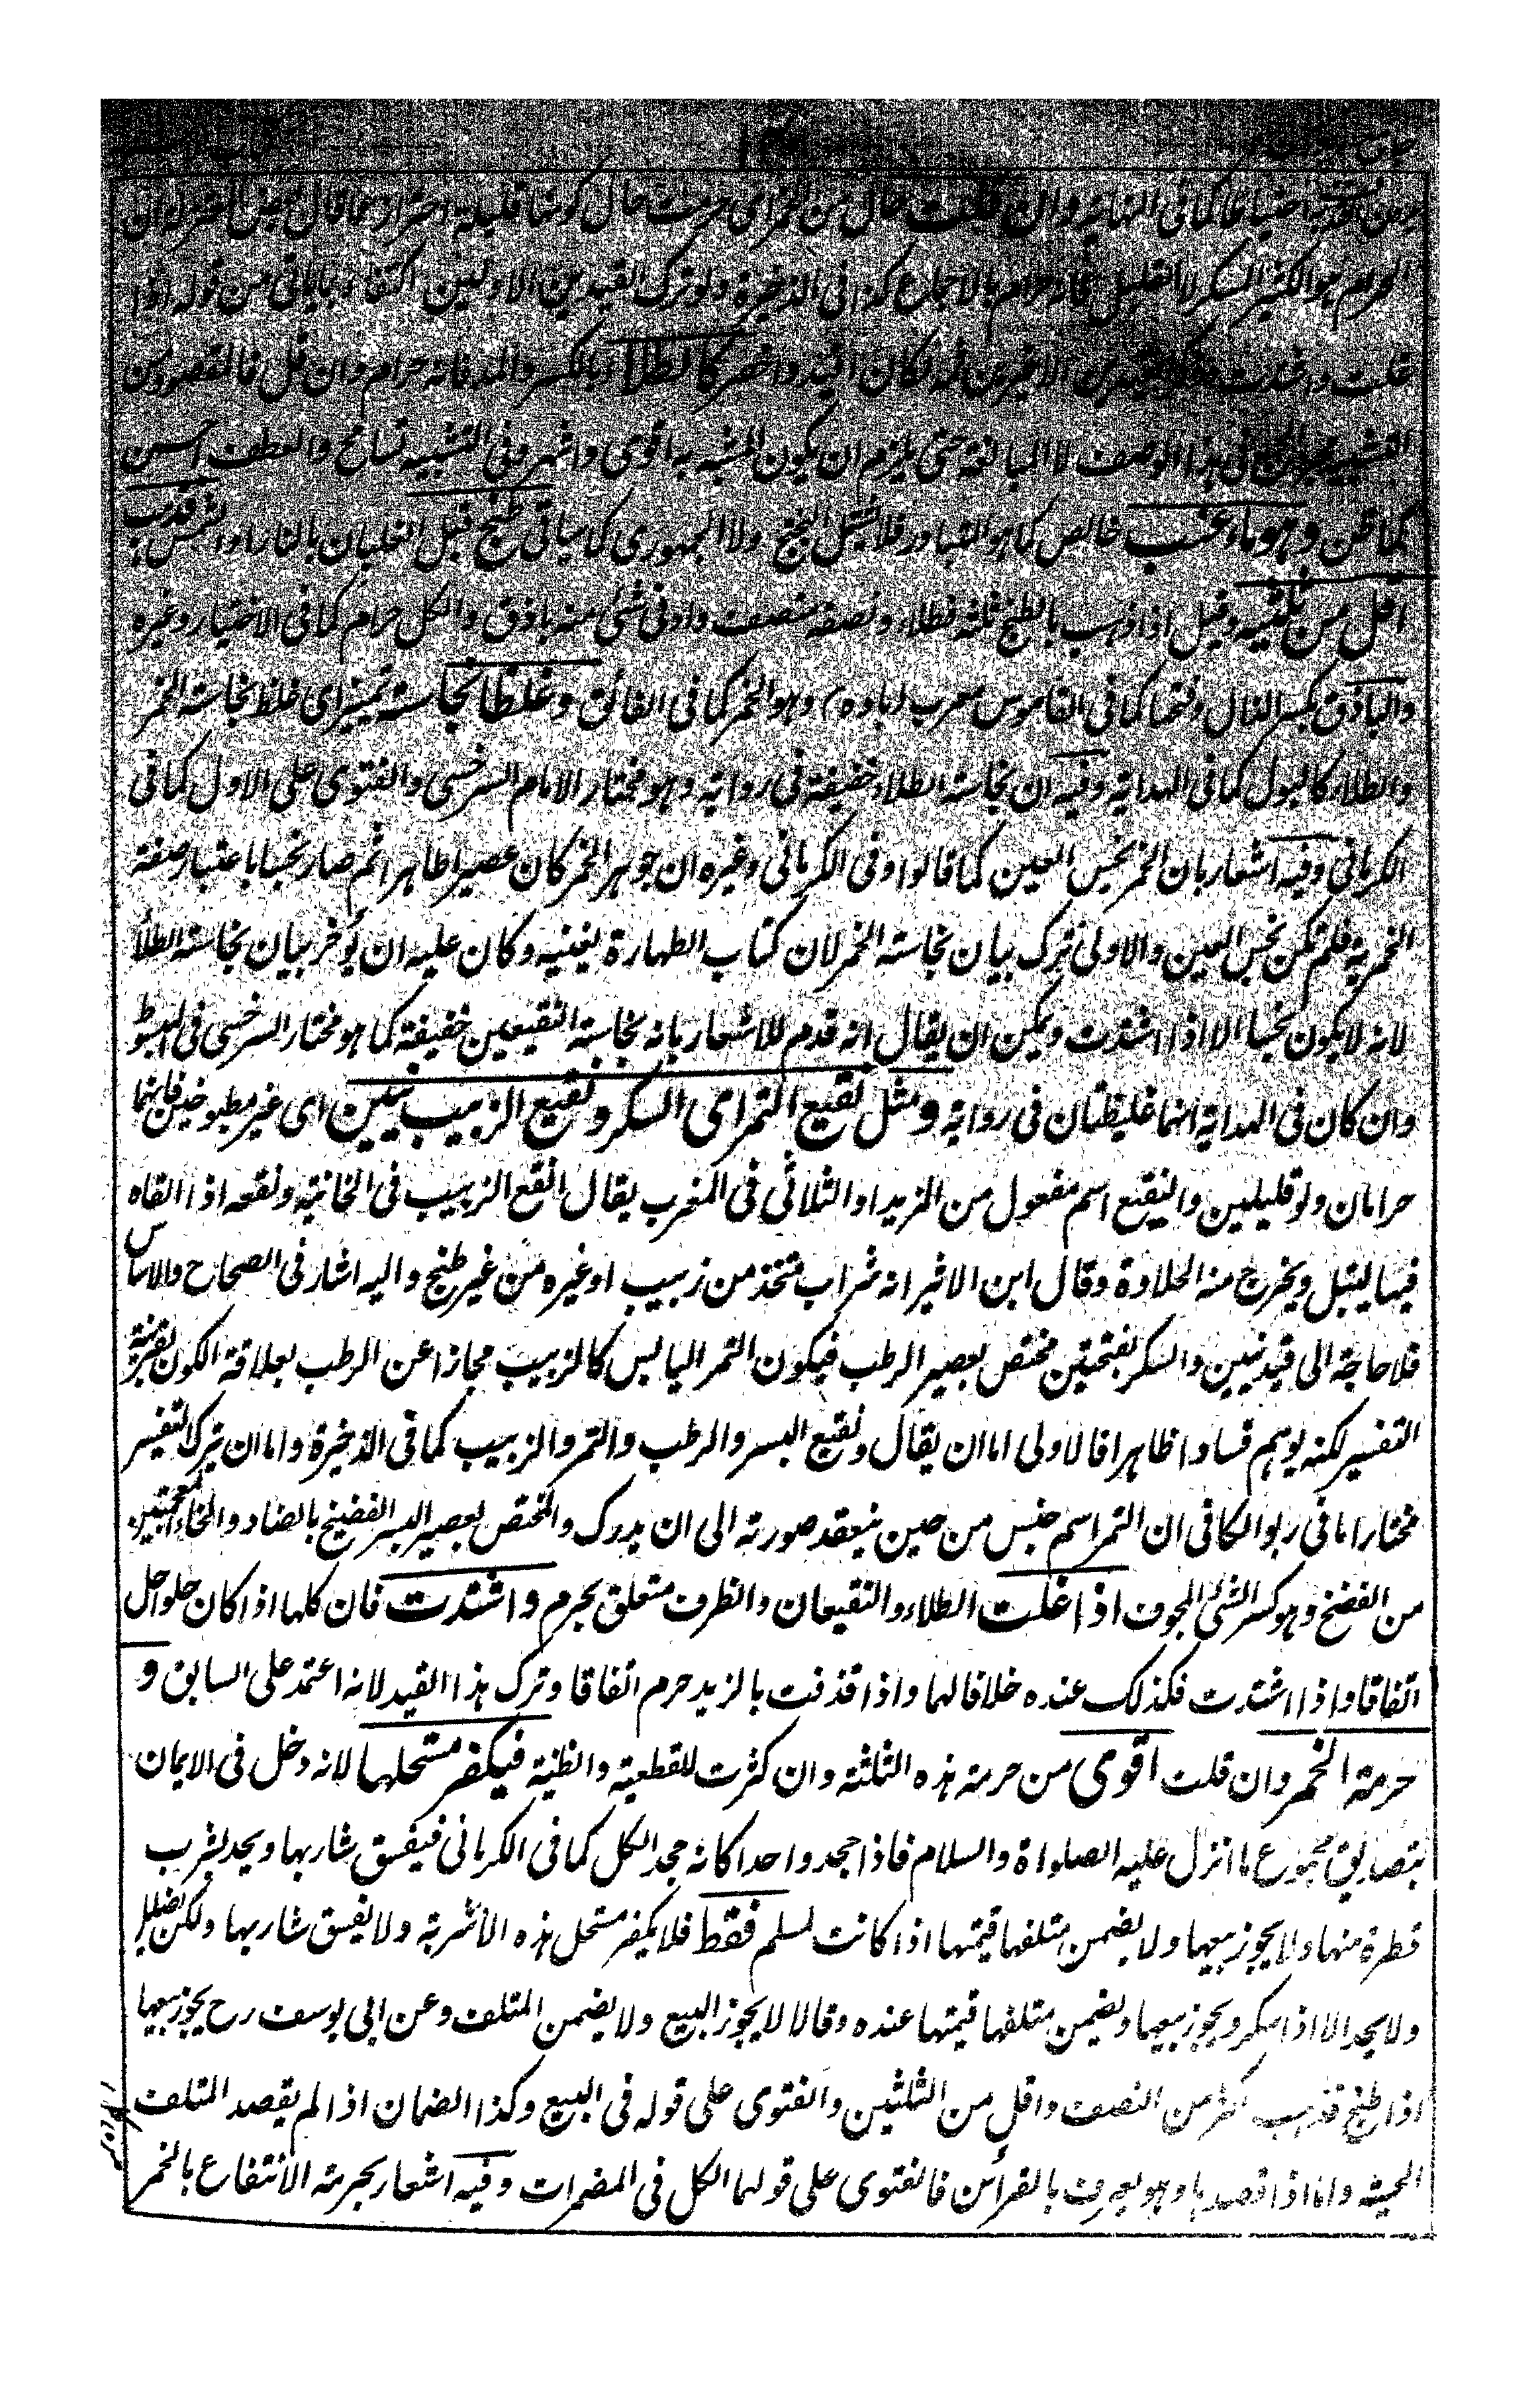 احتياطا كما فى النهاية وان قلت حال من الخمر اى حرمت حال كونها قليلة احتراز عما قال بعض المعتزلة ان
الحرام هو الكثير المسكر لا القليل فانه حرام بالاجماع كذا فى الذخيرة ولو ترك القيدين الاولين اكتفاء بما يأتى من قوله اذا
غلت واشتدت الاخيرين لكان اخصر كالطلاء بالكسر والمد فانه حرام وان قل فالمقصود من
التشبيه فى هذا الوصف لا المبالغة حتى يلزم ان يكون المشبه به اقوى واشهر وفى التشبيه تسامح والعطف احسن
كما ظن وهو ماء عنب خالص كما هو المتبادر فلا يشمل البختج ولا الجمهورى كما سيأتى طبخ قبل الغليان بالنار او الشمس فذهب
اقل من ثلثيه وقيل اذا ذهب بالطبخ ثلثه فطلاء ونصفه منصف وادنى شئ منه باذق والكل حرام كما فى الاختيار وغيره
والباذق بكسر الذال وفتحها كما فى القاموس معرب (باده) وهو الخمر كما فى الفائق وغلظا نجاسة تميز اى غلظ نجاسة الخمر
والطلاء كالبول كما فى الهداية وفيه ان نجاسة الطلاء خفيفة فى رواية وهو مختار الامام السرخسى والفتوى على الاول كما فى
الكرمانى وفيه اشعار بان الخمر نجس العين كما قالوا وفى الكرمانى وغيره ان جوهر الخمر كان عصيرا طاهرا ثم صار نجسا باعتبار صفة
الخمرية فلم تكن نجس العين والاولى ترك بيان نجاسة الخمر لان كتاب الطهارة يغنيه وكان عليه ان يؤخر بيان نجاسة الطلاء
لانه لا يكون نجسا الا اذا اشتدت ويمكن ان يقال انه قدم للاشعار بانه نجاسة النقيعين خفيفة كما هو مختار السرخسى فى المبسوط
وان كان فى الهداية انهما غليظتان فى رواية ومثل نقيع التمر اى السكر ونقيع الزبيب نيين اى غير مطبوخين فانهما
حرامان ولو قليلين والنقيع اسم مفعول من المزيد او الثلاثى فى المغرب يقال انقع الزبيب فى الخابية ونقعه اذا القاه
فيها ليبتل ويخرج منه الحلاوة وقال ابن الاثير انه شراب متخذ من زبيب او غيره من غير طبخ واليه اشار فى الصحاح والاساس
فلا حاجة الى قيد نيين والسكر بفتحتين مختص بعصير الرطب فيكون التمر اليابس كالزبيب مجازا عن الرطب بعلاقة الكون بقرينة
التفسير لكنه يوهم فسادا ظاهرا فالاولى اما ان يقال ونقيع البسر والرطب والتمر والزبيب كما فى الذخيرة واما ان يترك التفسير
مختارا ما فى ربوا الكافى ان التمر اسم جنس من حين ينعقد صورته الى ان يدرك والمختص بعصير البسر الفضيخ بالضاد والخاء المعجمتين
من الفضخ وهو كسر الشئ المجوف اذا غلت الطلاء والنقيعان والظرف متعلق بحرم واشتدت فان كلها اذا كان حلوا حل
اتفاقا واذا اشتدت فكذلك عنده خلافا لهما واذا قذفت بالزبد حرم اتفاقا وترك هذا القيد لانه اعتمد على السابق و
حرمة الخمر وان قلت اقوى من حرمة هذه الثلثة وان كثرت للقطعية والظنية فيكفر مستحلها لانه دخل فى الايمان
بتصديق مجموع ما انزل عليه الصلواة والسلام فاذا جحد واحدا كانه جحد الكل كما فى الكرمانى فيفسق شاربها ويحد بشرب
قطرة منها ولا يجوز بيعها ولا يضمن متلفها قيمتها اذا كانت لمسلم فقط فلا يكفر مستحل هذه الاشربة ولا يفسق شاربها ولكن يضلل
ولا يحد الا اذا سكر ويجوز بيعها ويضمن متلفها قيمتها عنده وقالا لا يجوز البيع ولا يضمن المتلف وعن ابى يوسف رح يجوز بيعها
اذا طبخ فذهب اكثر من النصف واقل من الثلثين والفتوى على قوله فى البيع وكذا الضمان اذا لم يقصد المتلف
الحسبة واما اذا قصدها وهو يعرف بالقرائن فالفتوى على قولهما الكل فى المضمرات وفيه اشعار بحرمة الانتفاع بالخمر